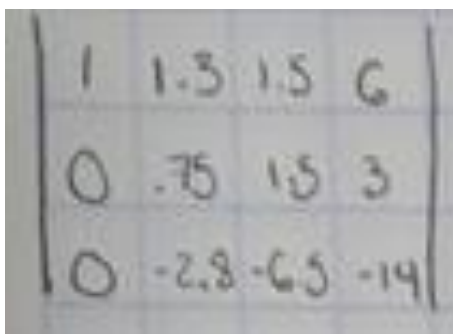 1 1.3 1.5 6
0 .75 1.5 3
0 -2.8 -6.5 -14